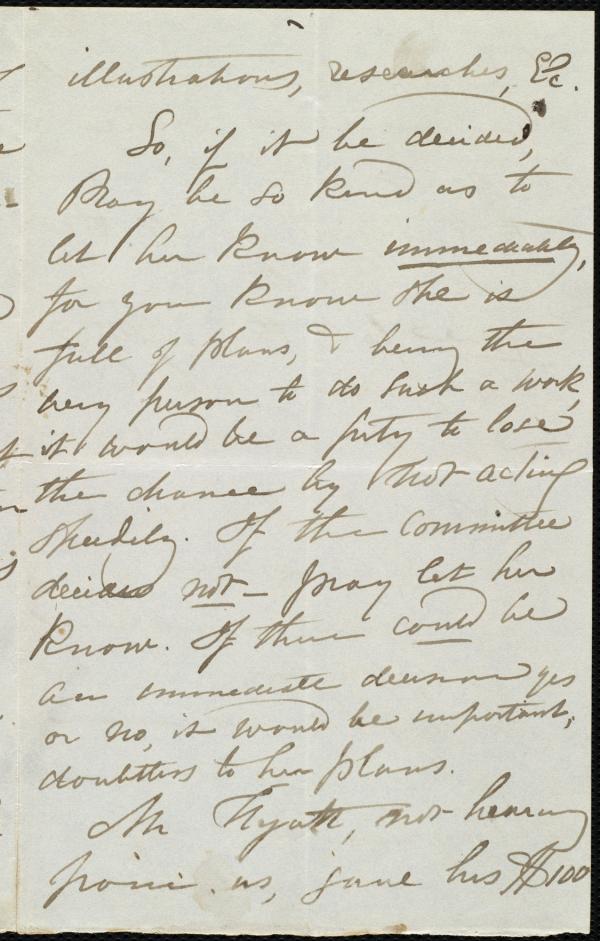 illustrations, researches, &c.
So, if it be decided,
Pray be so kind as to
let her know immediately,
for you know she is
full of plans, & being the
very person to do such a work,
it would be a pity to lose
the chance by not acting
speedily. If the Committee
decides not - pray let her
know. If there could be
an immediate decision yes
or no, it would be important,
doubtless to her plans.
Mr Hyatt, not hearing
from us, gave his $100